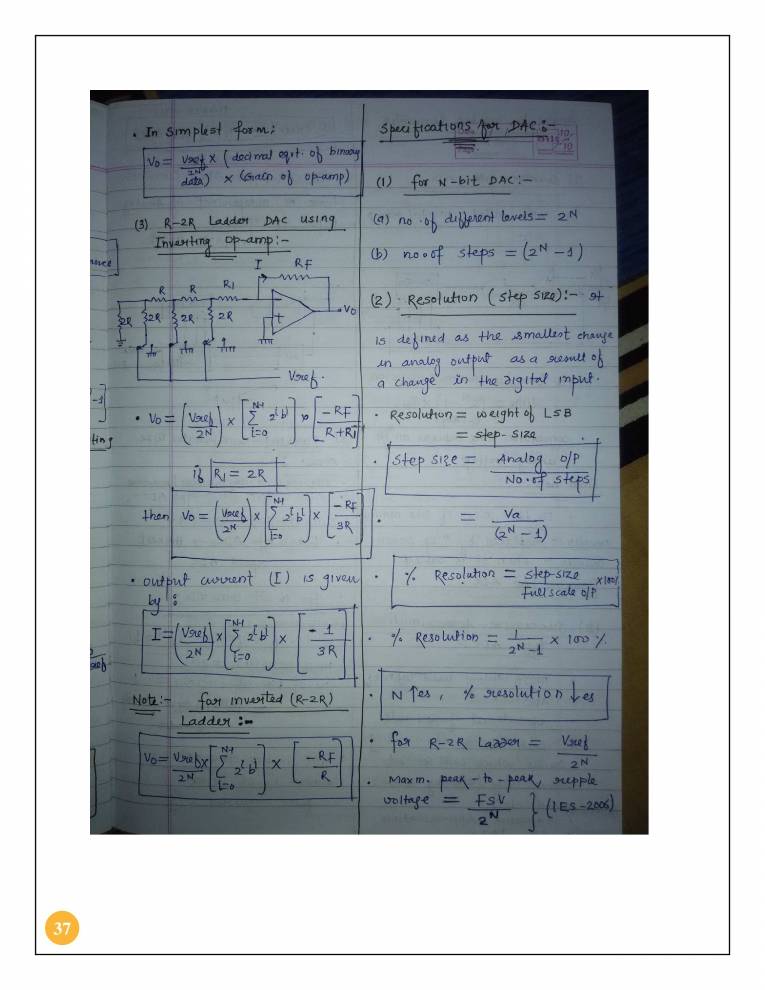 • In simplest form:
Vo = Vref/2^N × (decimal eqvt. of binary
data) × (Gain of op-amp)
(3) R-2R Ladder DAC using
Inverting op-amp:-
I RF
R R R1
2R 2R 2R 2R
Vo
Vref.
• Vo = (Vref/2^N) × [N-1 Σ i=0 2^i b^i] × [-RF/R+R1]
if R1 = 2R
then Vo = (Vref/2^N) × [N-1 Σ i=0 2^i b^i] × [-RF/3R]
• output current (I) is given
by :
I = (Vref/2^N) × [N-1 Σ i=0 2^i b^i] × [-1/3R]
Note:- for inverted (R-2R)
Ladder :-
Vo = Vref/2^N × [N-1 Σ i=0 2^i b^i] × [-RF/R]
Specifications for DAC:-
(1) for N-bit DAC:-
(a) no. of different levels = 2^N
(b) no. of steps = (2^N - 1)
(2) Resolution (step size):- It
is defined as the smallest change
in analog output as a result of
a change in the digital input.
• Resolution = weight of LSB
= step-size
• Step size = Analog O/P / No. of steps
• = Va/(2^N - 1)
• % Resolution = step-size/Full scale O/P × 100%
• % Resolution = 1/2^N-1 × 100 %
• N ↑es, % resolution ↓es
• for R-2R Ladder = Vref/2^N
• Maxm. peak-to-peak, ripple
voltage = FSV/2^N } (IES-2006)
37